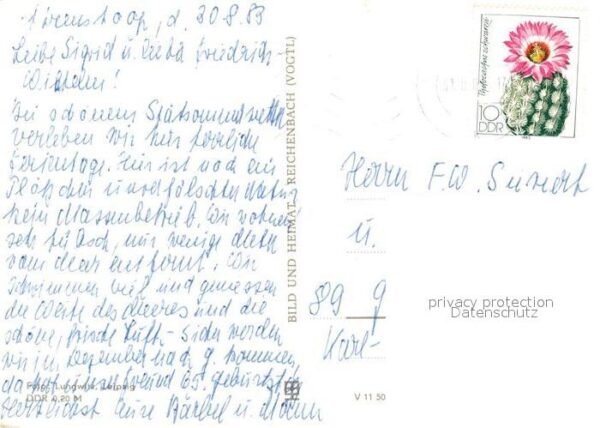 d. 30.8.83
Liebe Sigrid u. lieber Friedrich-
Wilhelm!
Bei schönem Spätsommerwetter
verleben wir hier herrliche
Ferientage. Hier ist noch ein
Plätzchen unverfälschter Natur
kein Massenbetrieb. Wir wohnen
sehr hübsch, nur wenige Meter
vom Meer entfernt. Wir
schwimmen viel und geniessen
die Weite des Meeres und die
schöne, frische Luft – Sicher werden
wir im Dezember nach g. kommen,
da hat unser Freund 65. Geburtstag
Herzlichst Eure Bärbel u.
Foto: Lungwitz, Leipzig
DDR 0,20 M
BILD UND HEIMAT REICHENBACH (VOGTL)
V 11 50
10
DDR
Herrn F.W.
u.
89 g
Karl-
privacy protection
Datenschutz